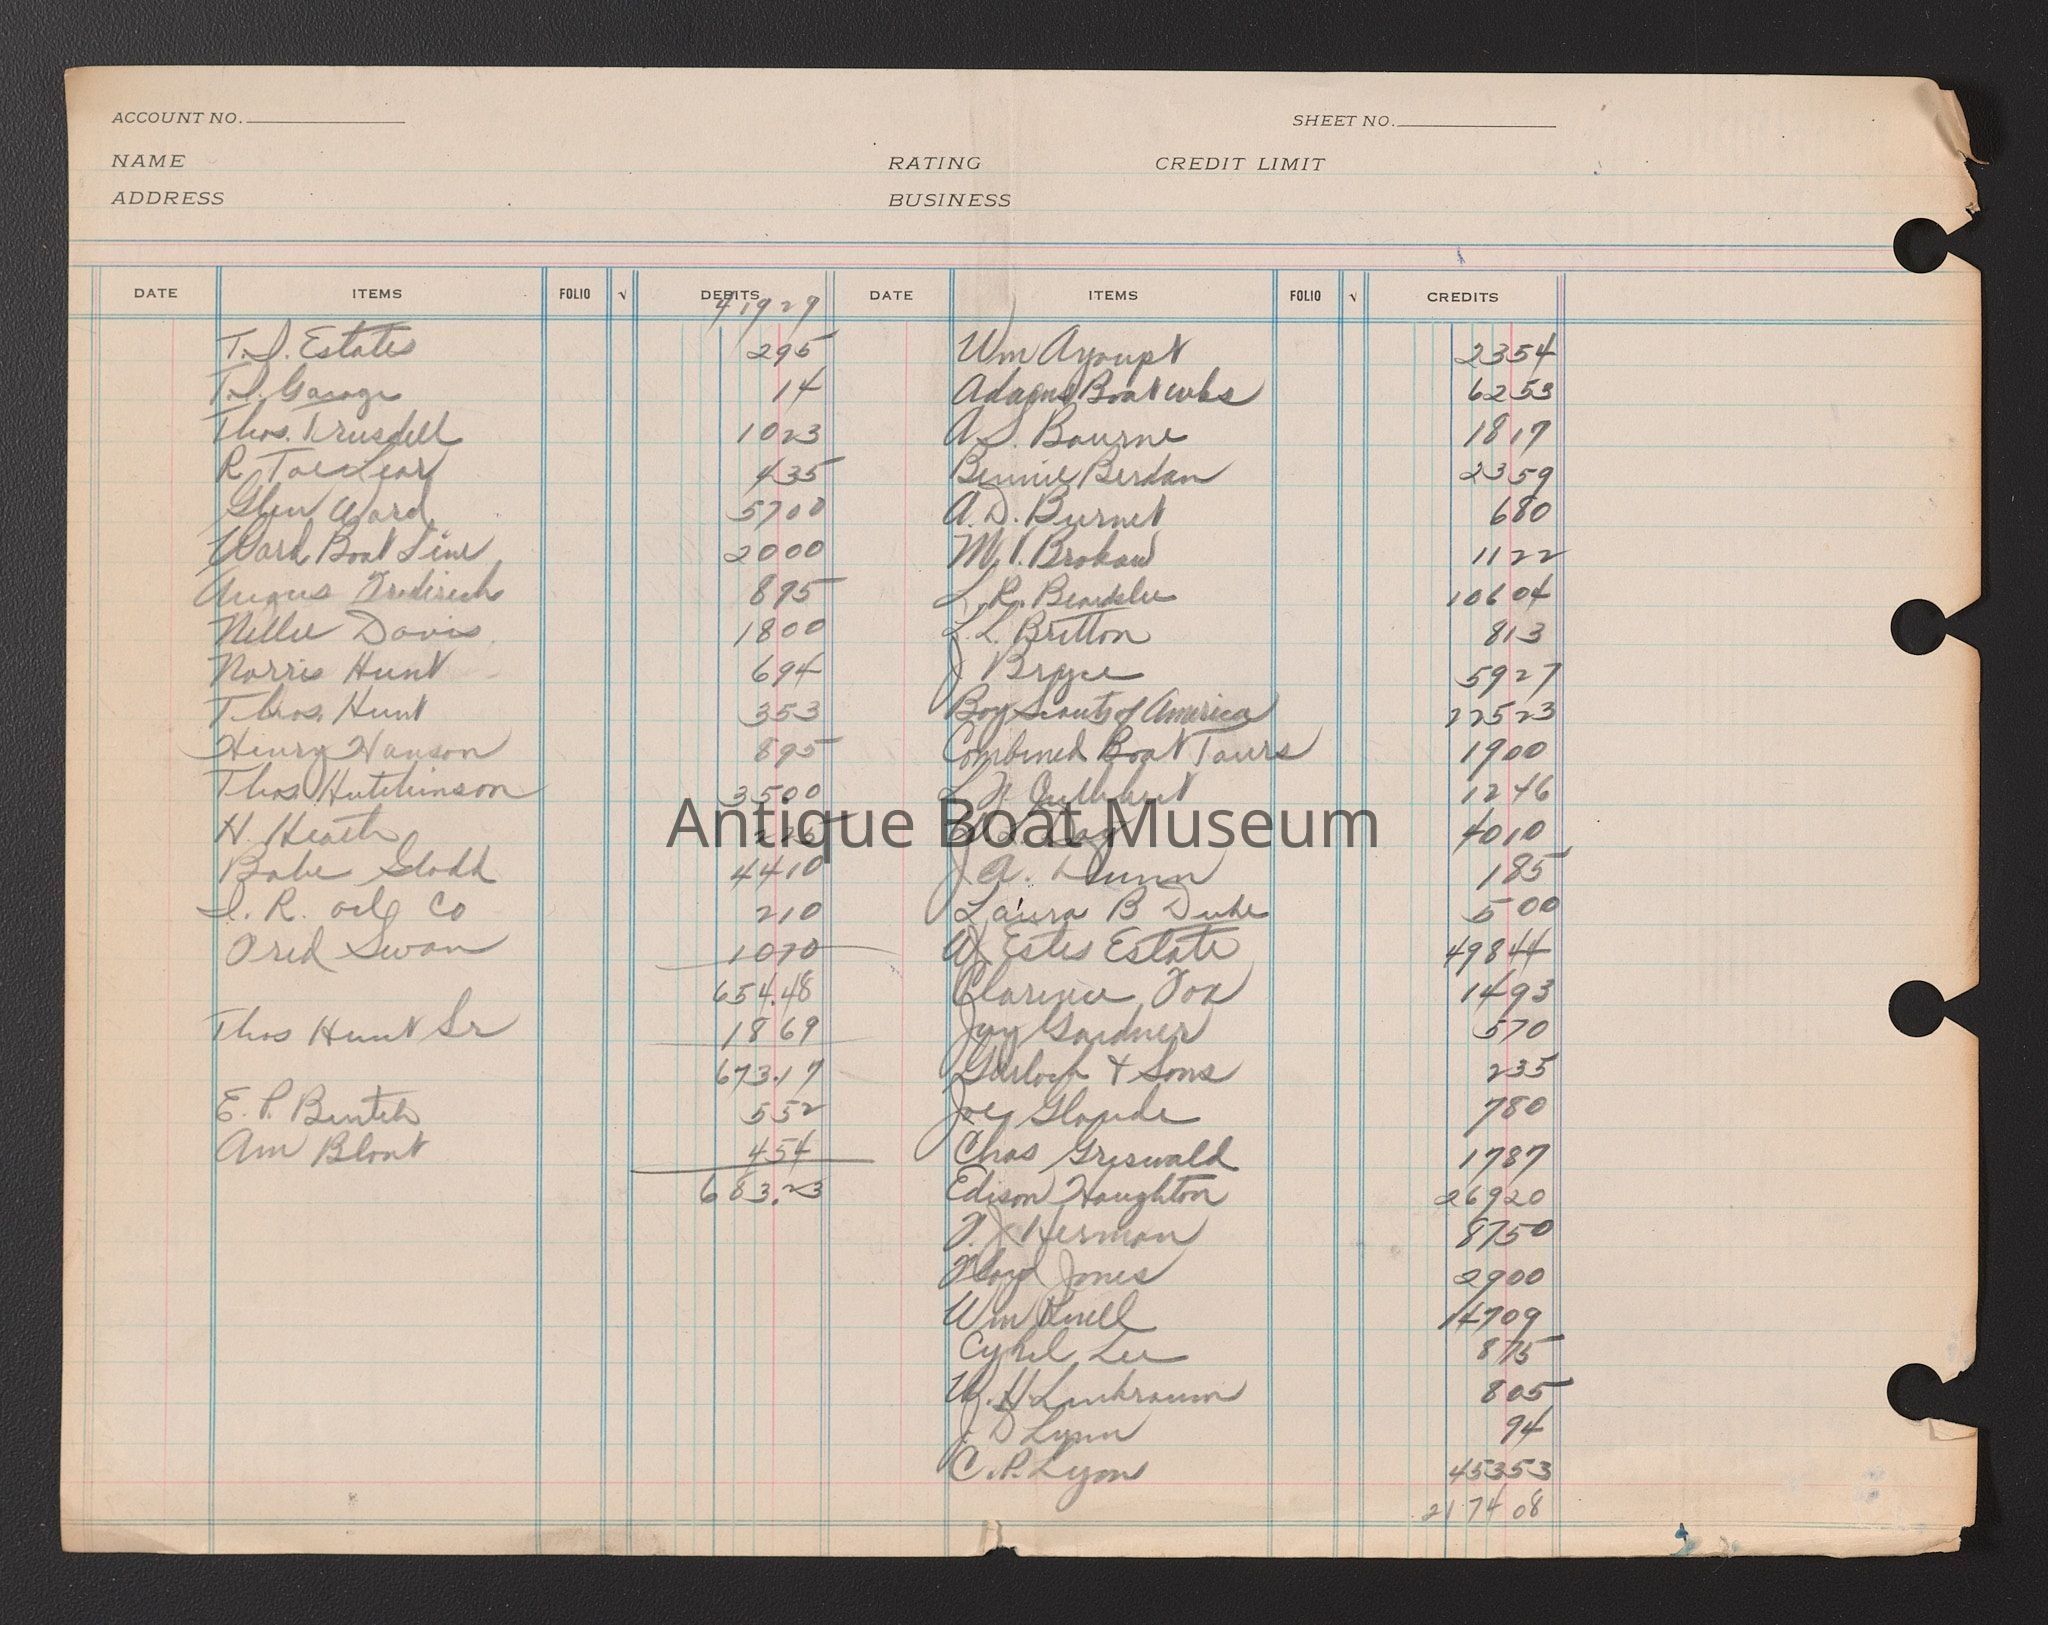 ACCOUNT NO. SHEET NO.
NAME RATING CREDIT LIMIT
ADDRESS BUSINESS
DATE ITEMS FOLIO √ DEBITS DATE ITEMS FOLIO √ CREDITS
41929
T.I. Estates 295 Wm Ayoupt 2354
T.I. Garage 14 Adams Boat wks 6253
Thos. Trusdell 1023 A.S. Bourne 1817
R 435 Bennie Berdan 2359
Glen Ward 5700 A.D. Burnet 680
Ward Boat Line 2000 M.V. Brokaw 1122
Angus Fredirick 895 L.R. Beardslee 10604
Nellie Davis 1800 L.L. Britton 813
Norris Hunt 694 J Bryce 5927
Thos. Hunt 353 Boy Scouts of America 22523
Henry Hanson 895 Combined Boat Tours 1900
Thos Hutchinson 3500 1246
H. Heath 225 Day 4010
Antique Boat Museum
Babe Gladd 4410 J A. Dunn 185
S. R. oil Co 210 Laura B Duke 500
Fred Swan 1070 W Estes Estate 49844
654.48 Clarence Fox 1493
Thos Hunt Sr 1869 Jay Gardner 570
673.17 Garlock & Sons 235
E. P. 552 Joe Glaude 780
Am Blont 454 Chas Griswald 1787
683.23 Edison Haughton 26920
F. J Herman 8750
Floyd Jones 2900
Wm Knell 14709
Cyril Lee 875
W. H. 805
J. D Lynn 94
C. P. Lyon 45353
217408